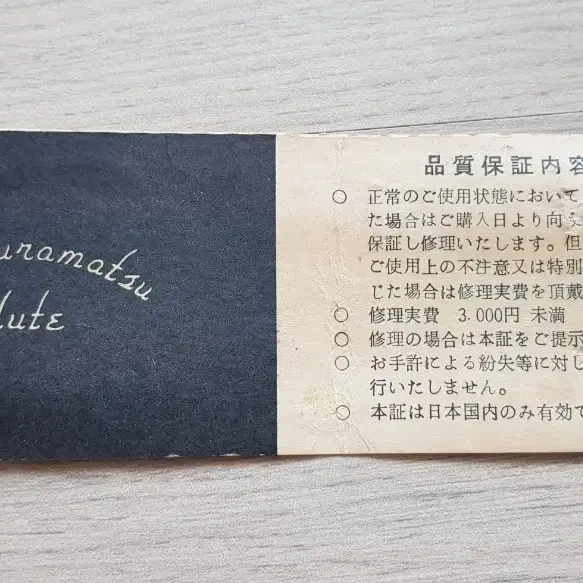 uramatsu
lute
品質保証内容
○ 正常のご使用状態において
た場合はご購入日より向
保証し修理いたします。但
ご使用上の不注意又は特別
じた場合は修理実費を頂戴
○ 修理実費 3.000円 未満
○ 修理の場合は本証をご提示
○ お手許による紛失等に対し
行いたしません。
○ 本証は日本国内のみ有効で